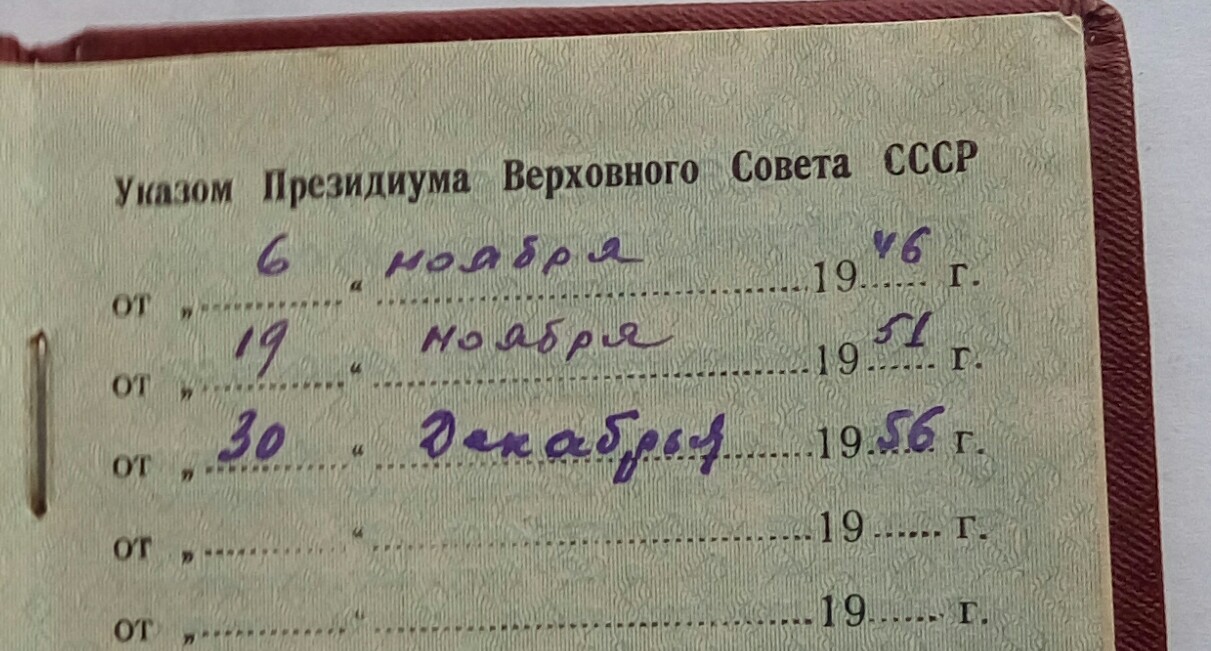 Указом Президиума Верховного Совета СССР
от „ 6 “ ноября 1946 г.
от „ 19 “ ноября 1951 г.
от „ 30 “ Декабря 1956 г.
от „ “ 19 г.
от „ “ 19 г.